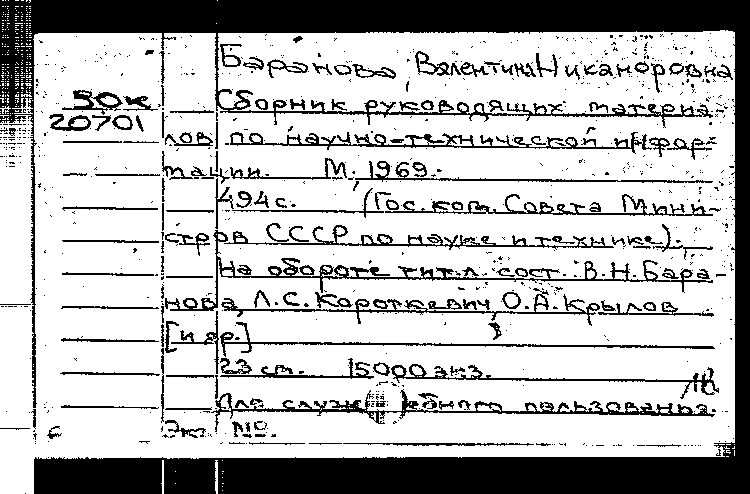 Баранова, Валентина Никаноровна
50к
20701
Сборник руководящих материа-
лов по научно-технической инфор-
мации. М., 1969.
494 с. (Гос. ком. Совета Мини-
стров СССР по науке и технике).
На обороте тит. л. сост. В.Н. Бара-
нова, Л.С. Короткевич, О.А. Крылов
[и др.]
23 см. 5000 экз.
Для служебного пользования.
Экз. №